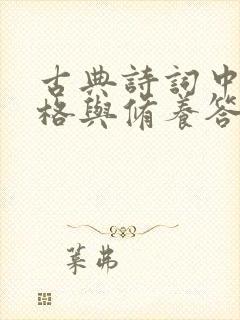 古典詩詞中
格與脩養答
葉弗